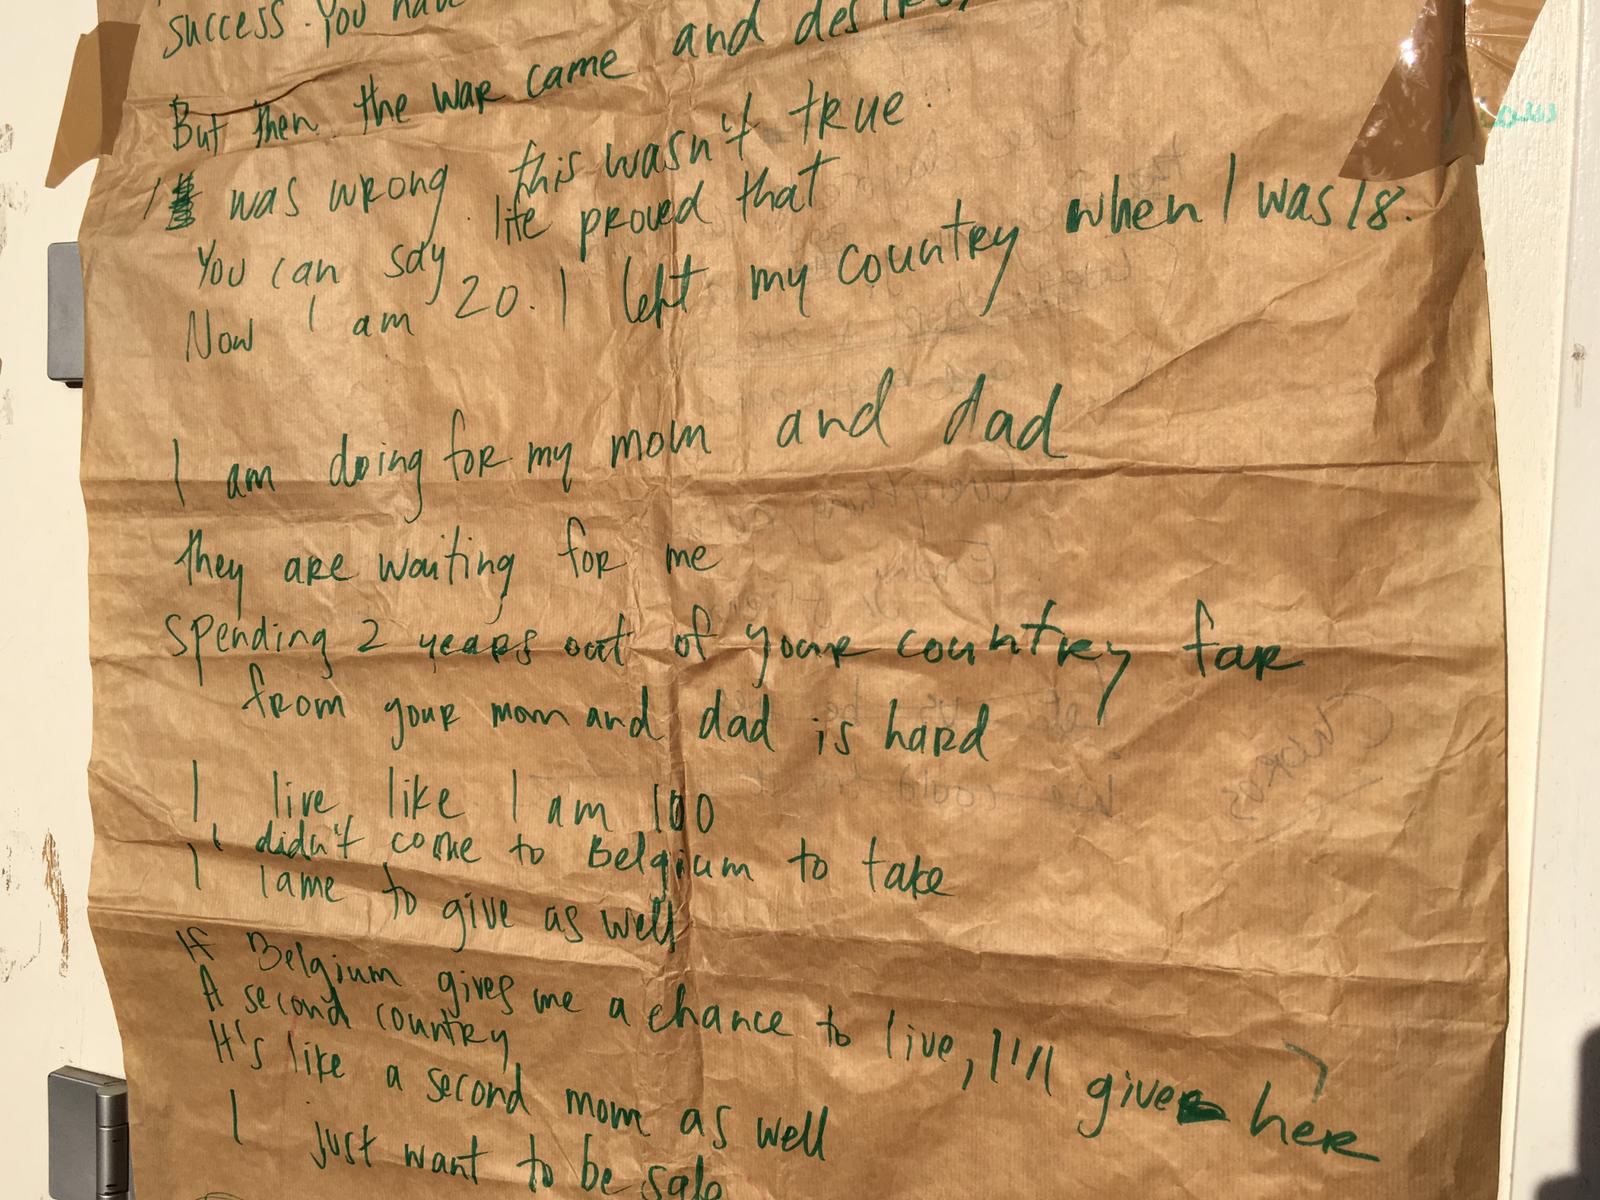 success. You have
But then the war came and
I was wrong. this wasn't true
You can say life proved that
Now I am 20. I left my country when I was 18.
I am doing for my mom and dad
they are waiting for me
spending 2 years out of your country far
from your mom and dad is hard
I live like I am 100
I didn't come to Belgium to take
I came to give as well
If Belgium gives me a chance to live, I'll give here
A second country
It's like a second mom as well
I just want to be safe